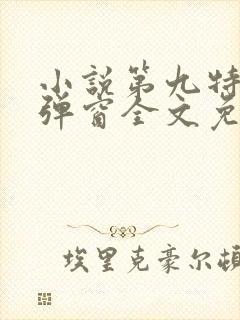 小說第九特
彈窗全文免
埃里克豪尔頓